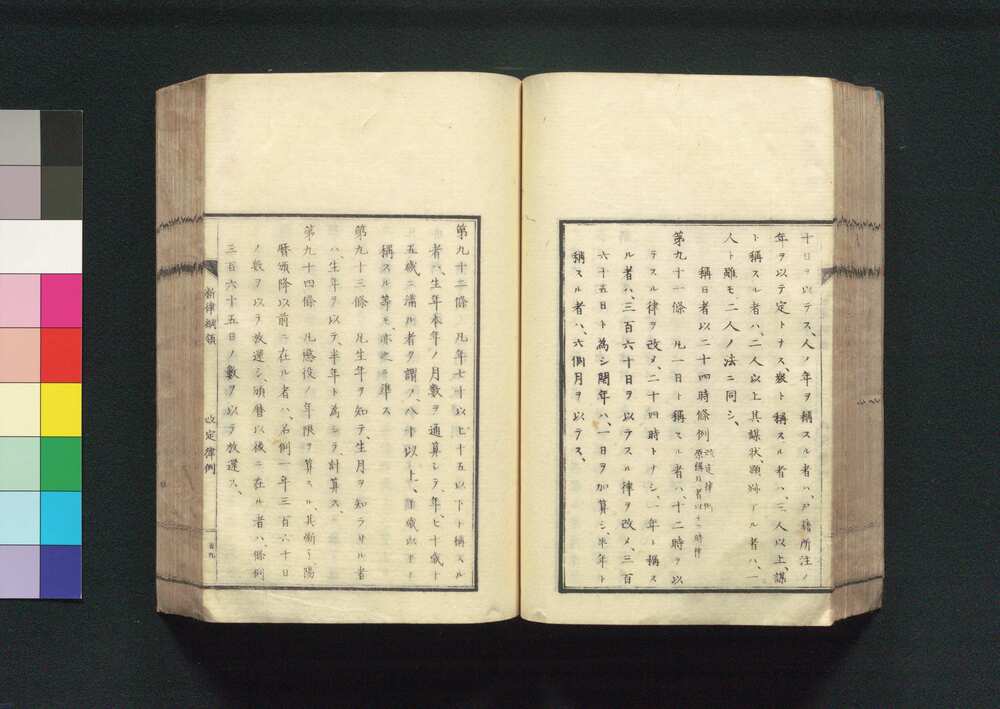 十日ヲ以テス、人ノ年ヲ稱スル者ハ、戸籍所注ノ
年ヲ以テ定トナス、衆ト稱スル者ハ、三人以上、謀
ト稱スル者ハ、二人以上其謀狀顯跡アル者ハ、一
人ト雖モ二人ノ法ニ同シ、
稱日者以二十四時條例 改定律例 原稱日者以十二時律
第九十一條 凡一日ト稱スル者ハ、十二時ヲ以
テスル律ヲ改メ、二十四時トナシ、一年ト稱ス
ル者ハ、三百六十日ヲ以テスル律ヲ改メ、三百
六十五日ト為シ閏年ハ、一日ヲ加算シ、半年ト
稱スル者ハ、六個月ヲ以テス、
第九十二條 凡年七十以上十五以下ト稱スル
者ハ、生年本年ノ月數ヲ通算シテ、年、七十歳十
五歳ニ滿ル者ヲ謂フ、八十以上、歳以下ト
稱スル等モ、亦之ニ準ス
第九十三條 凡生年ヲ知テ、生月ヲ知ラサル者
ハ、生年ヲ以テ、半年ト為シテ、計算ス、
第九十四條 凡懲役ノ年限ヲ算スル、其衝テ陽
暦頒降以前ニ在ル者ハ、名例一年三百六十日
ノ數ヲ以テ放還シ、頒暦以後ニ在ル者ハ、條例
三百六十五日ノ數ヲ以テ放還ス、
新律綱領 改定律例